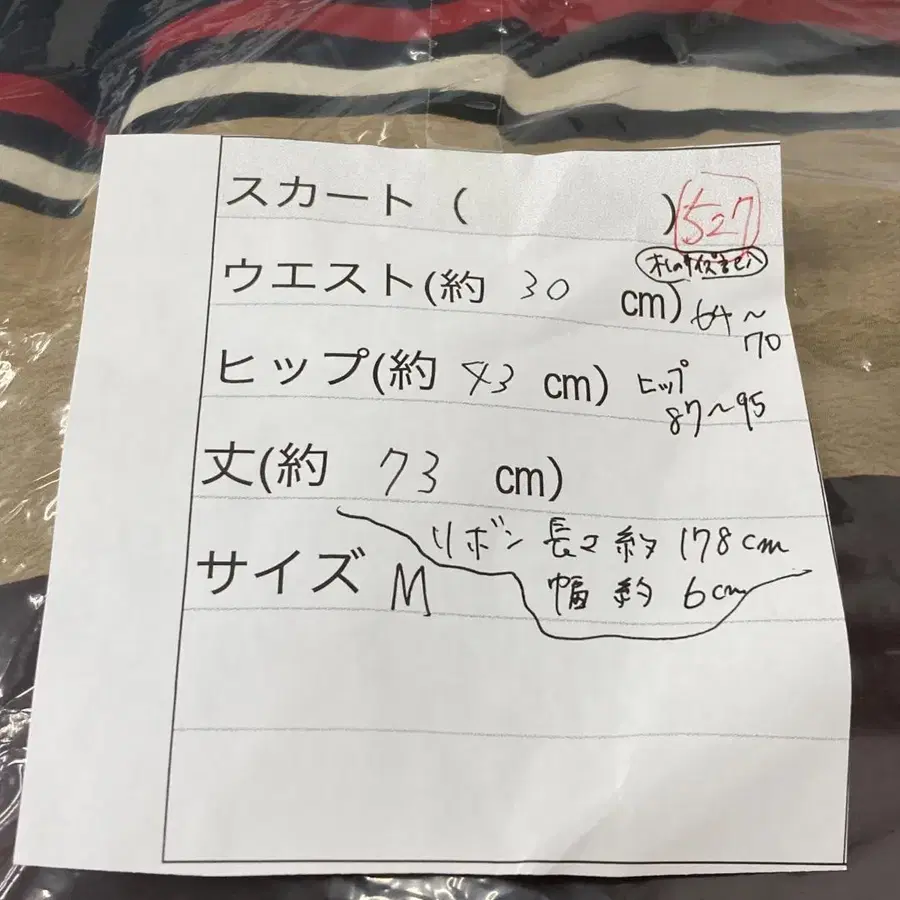 スカート ( ) 527
ウエスト(約 30 cm) 64〜
70
ヒップ(約 43 cm) ヒップ
87〜95
丈(約 73 cm)
リボン 長さ 約 178cm
サイズ M
幅 約 6cm